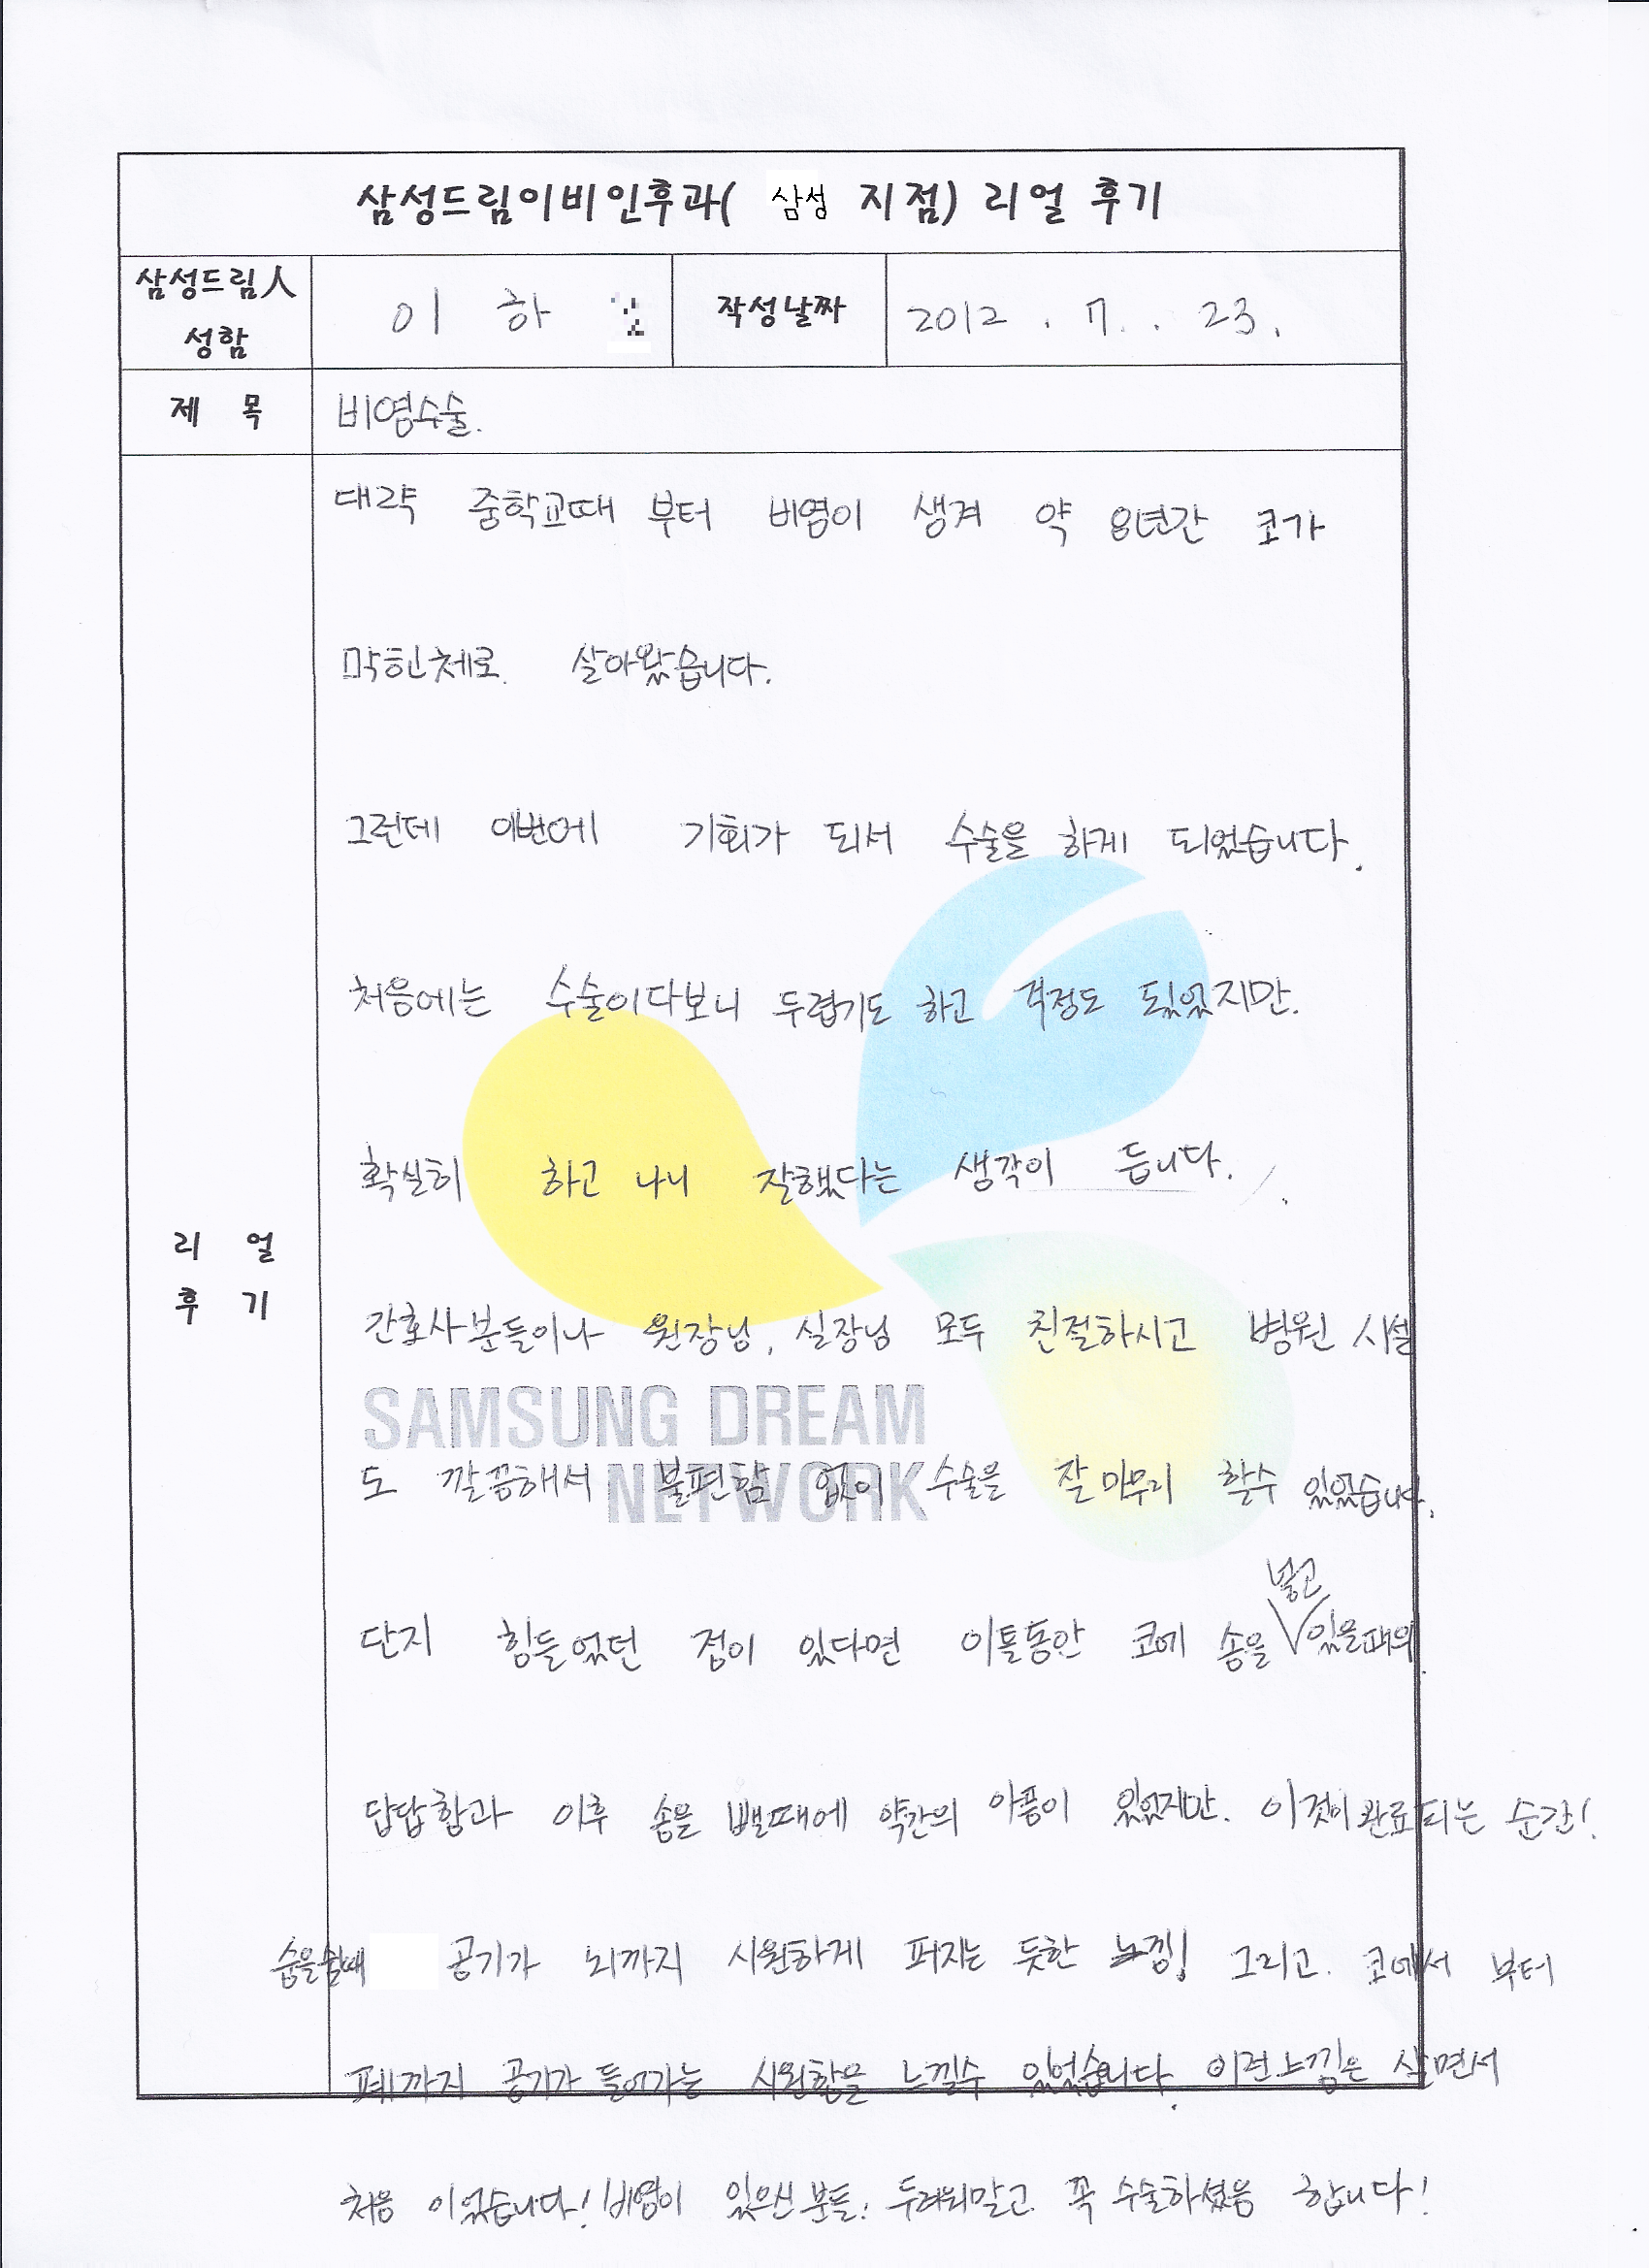 삼성드림이비인후과( 삼성 지점) 리얼 후기
삼성드림人
성함
이 하
작성날짜
2012 . 7. . 23.
제 목
비염수술.
대략 중학교때 부터 비염이 생겨 약 8년간 코가
막힌체로. 살아왔습니다.
그런데 이번에 기회가 되서 수술을 하게 되었습니다.
처음에는 수술이다보니 두렵기도 하고 걱정도 되었지만.
확실히 하고 나니 잘했다는 생각이 듭니다.
리 얼
후 기
간호사분들이나 원장님, 실장님 모두 친절하시고 병원 시설
SAMSUNG DREAM
NETWORK
도 깔끔해서 불편함 없이 수술을 잘 마무리 할수 있었습니다.
넣고
단지 힘들었던 점이 있다면 이틀동안 코에 솜을 있을때의
답답함과 이후 솜을 뺄때에 약간의 아픔이 있었지만. 이것이 완료되는 순간!
숨을쉴때 공기가 뇌까지 시원하게 퍼지는 듯한 느낌! 그리고. 코에서 부터
폐까지 공기가 들어가는 시원함을 느낄수 있었습니다. 이런느낌은 살면서
처음 이었습니다! 비염이 있으신 분들! 두려워말고 꼭 수술하셨음 합니다!